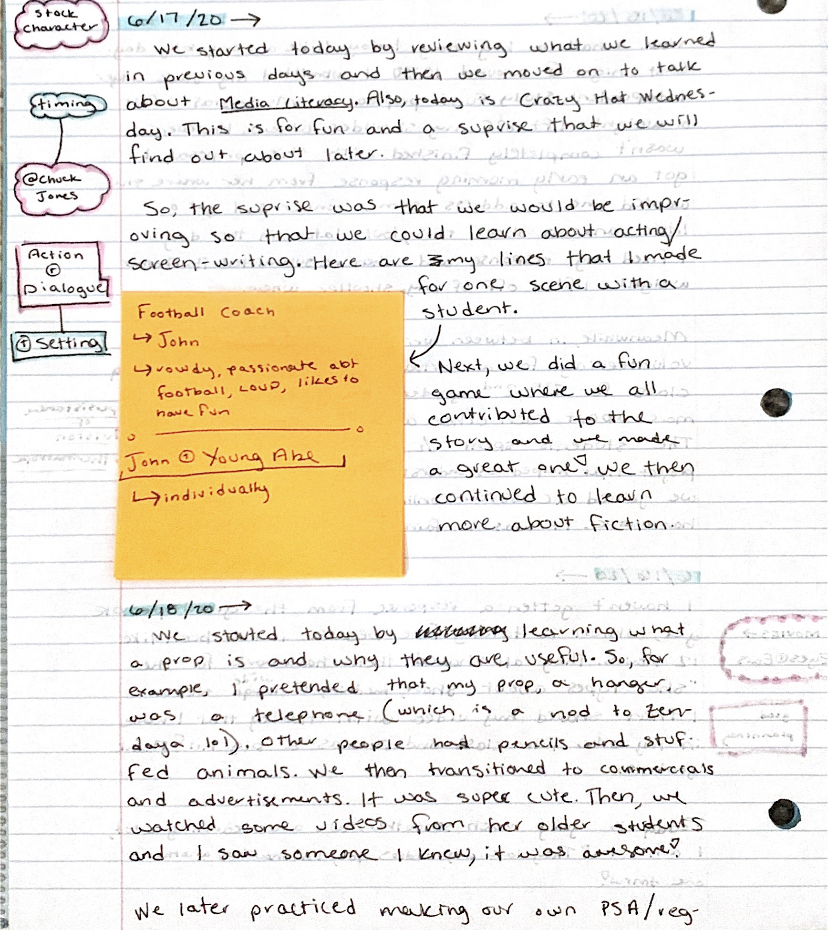 Stock
Character
timing
@Chuck
Jones
Action
@
Dialogue
+ Setting
6/17/20 →
We started today by reviewing what we learned
in previous days and then we moved on to talk
about Media Literacy. Also, today is Crazy Hat Wednes-
day. This is for fun and a suprise that we will
find out about later.
So, the suprise was that we would be impr-
oving so that we could learn about acting/
screen-writing. Here are my lines that I made
for one scene with a
student.
Football Coach
↳ John
↳ rowdy, passionate abt
football, LOUD, likes to
have fun
John + Young Abe
↳ individually
Next, we did a fun
game where we all
contributed to the
story and we made
a great one! We then
continued to learn
more about fiction.
6/18/20 →
We started today by learning what
a prop is and why they are useful. So, for
example, I pretended that my prop, a hanger,
was a telephone (which is a nod to Zen-
daya lol). Other people had pencils and stuf-
fed animals. We then transitioned to commercials
and advertisements. It was super cute. Then, we
watched some videos from her older students
and I saw someone I knew, it was awesome!
We later practiced making our own PSA/reg-